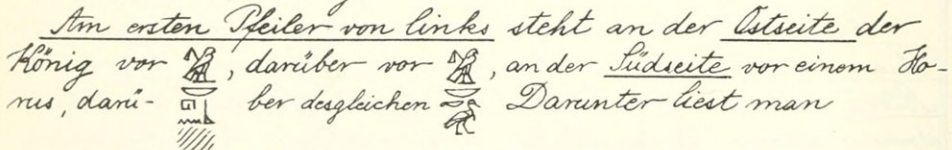 Am ersten Pfeiler von links steht an der Ostseite der
König vor , darüber vor , an der Südseite vor einem Ho-
rus, darü- ber desgleichen Darunter liest man